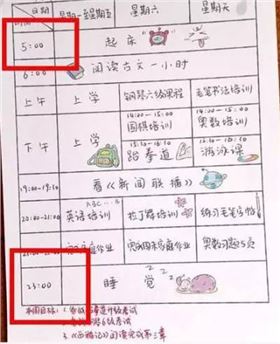 日期 星期一至星期五 星期六 星期天
时间
5:00 起床
6:00 阅读古文一小时
上午 上学 钢琴六级课程 毛笔书法培训
下午 上学 14:00-15:00 围棋培训 14:00-15:00 奥数培训
跆拳道 游泳课
19:00-19:30 看《新闻联播》
20:00-21:00 英语培训 拉丁舞培训 练习毛笔字帖
家庭作业 完成周末家庭作业 奥数习题5页
23:00 睡觉
ZZZ
本周目标:
3.《西游记》阅读完成第三章